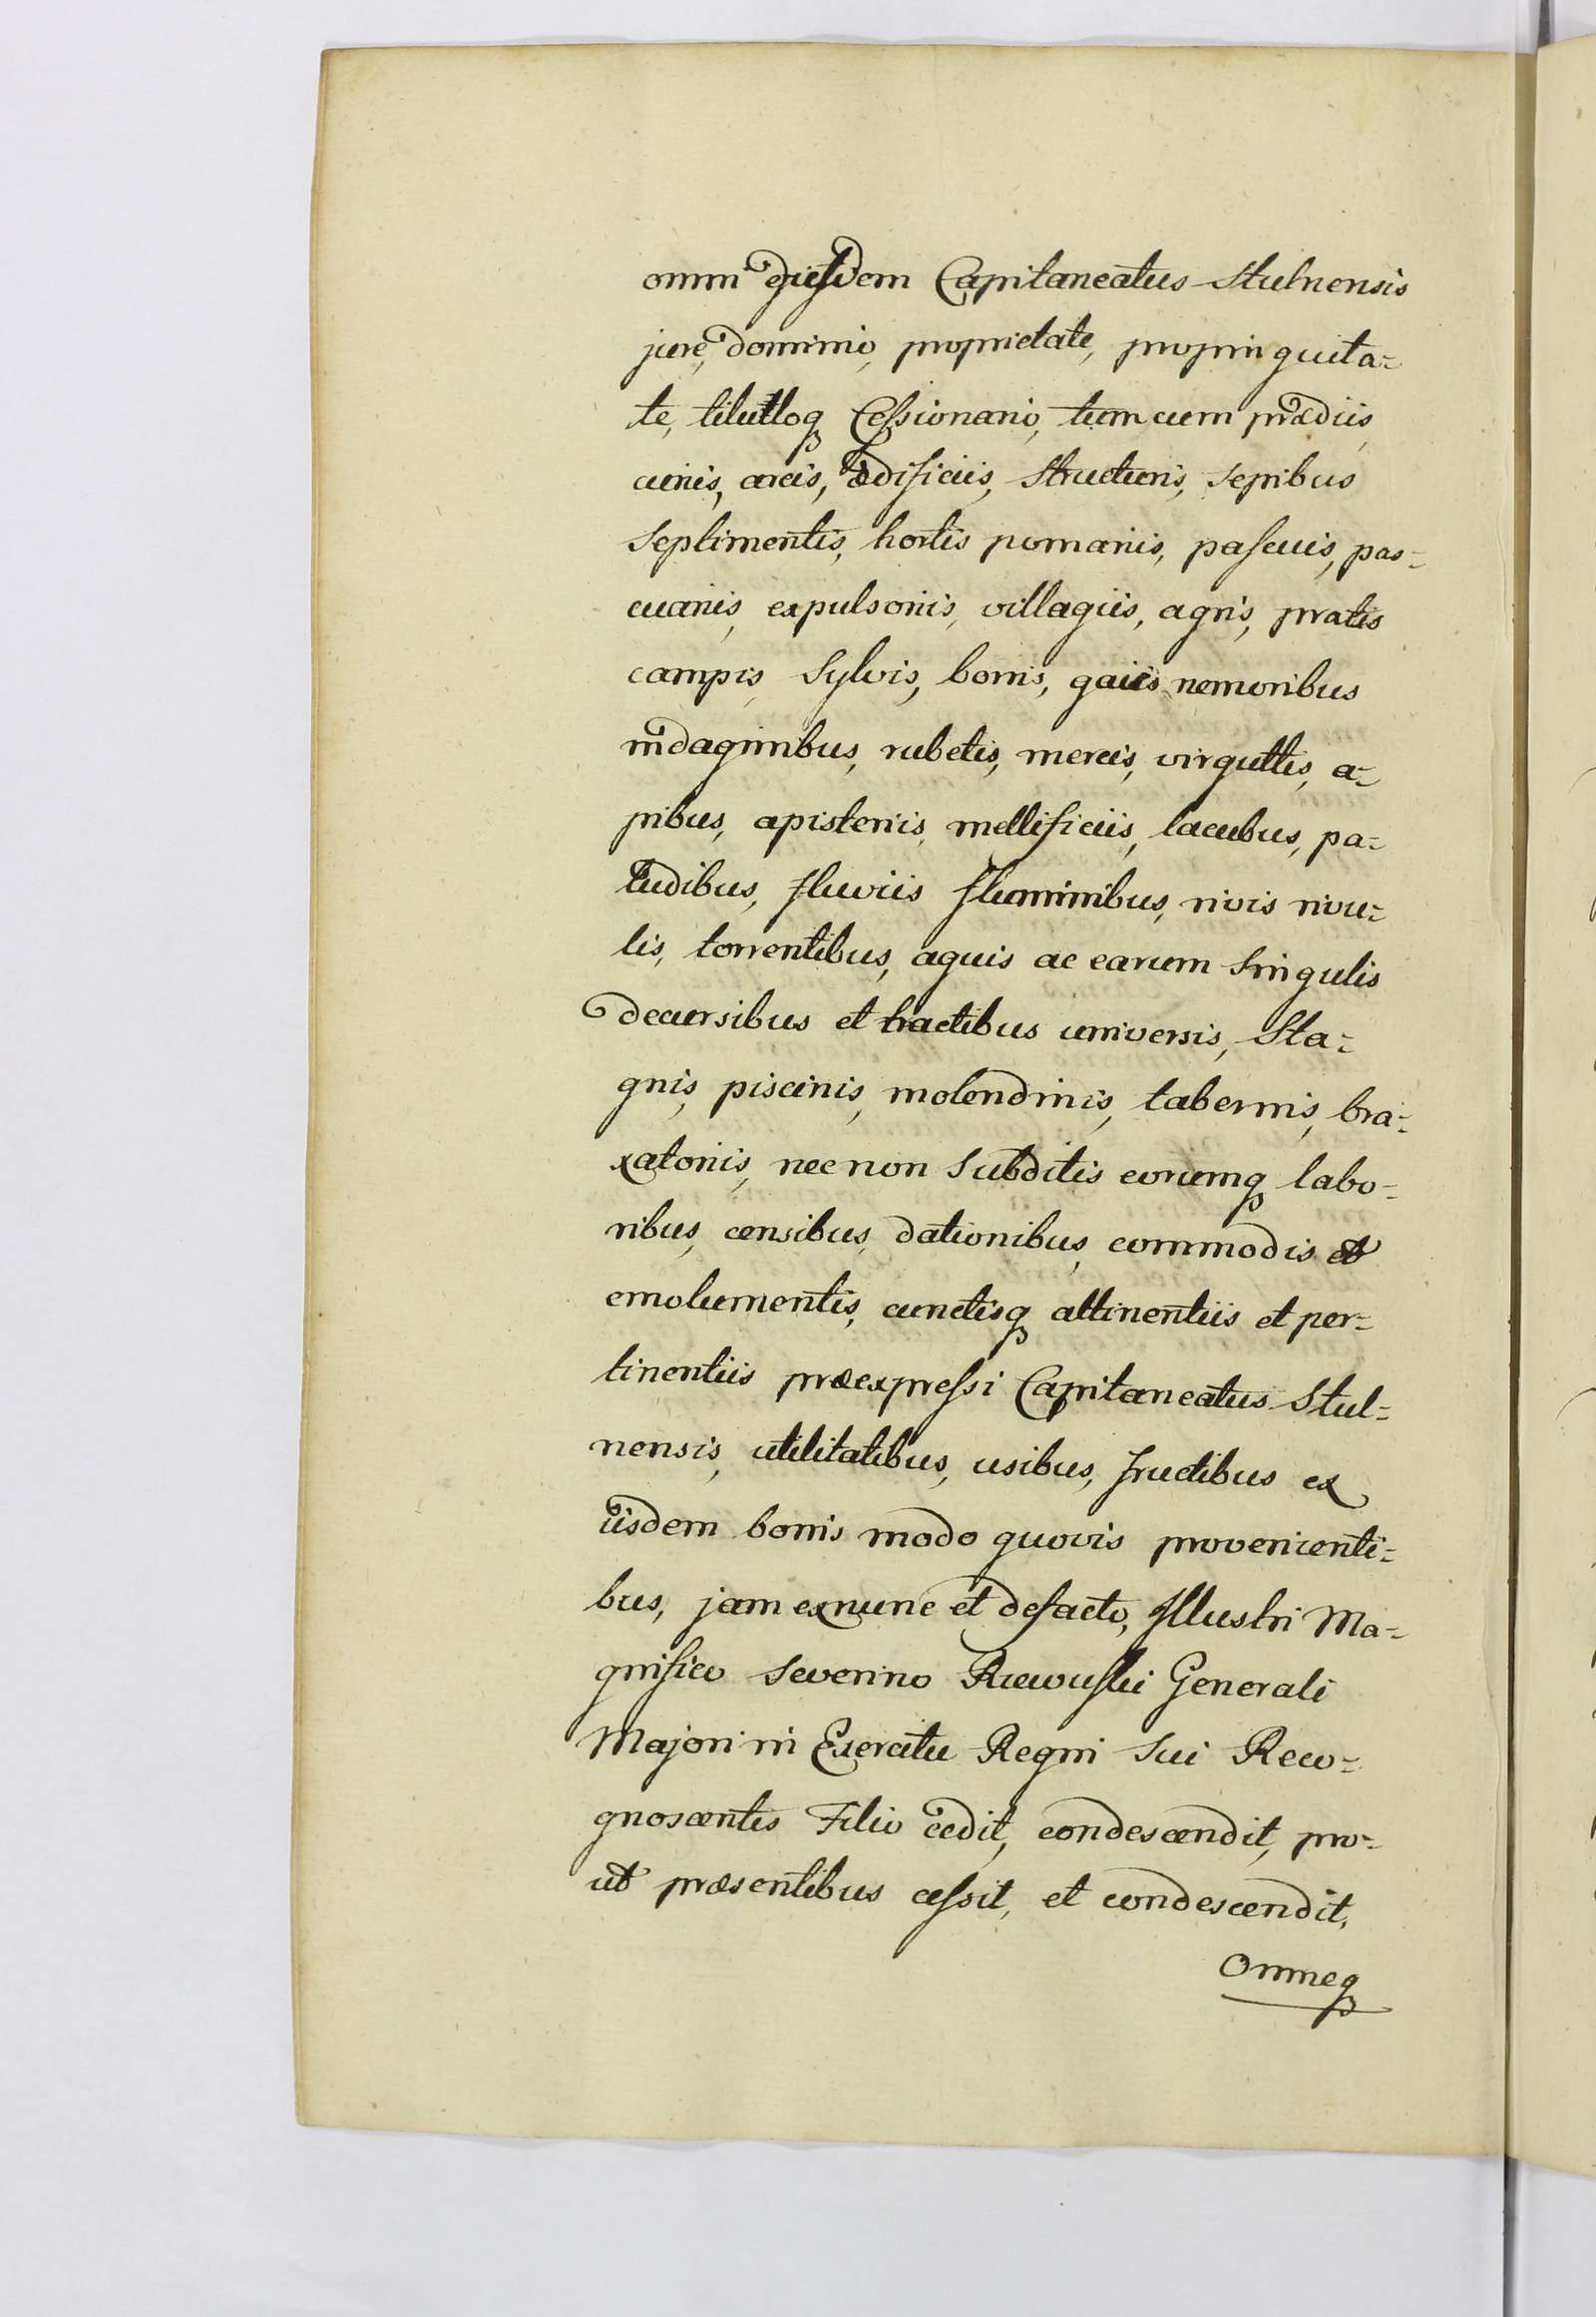 omni ejusdem Capitaneatus Stulnensis
jure, dominio, proprietate, propinquita=
te, tituloq Cessionario, tum cum prædiis,
curiis, arcis, ædificiis, structuris, sepibus
septimentis, hortis pomariis, pascuis, pas=
cuariis, expulsoriis, villagiis, agris, pratis
campis, Sylvis, borris, gaiis nemoribus
indaginibus, rubetis, mericis, virgultis, a=
pibus, apisteriis, mellificiis, lacubus, pa=
ludibus, fluviis fluminibus, rivis rivu=
lis, torrentibus, aquis ac earum singulis
decursibus et tractibus universis, Sta=
gnis, piscinis, molendinis, tabernis, bra=
xatoriis, nec non Subditis eorumq labo=
ribus, censibus, dationibus, commodis et
emolumentis, cunctisq attinentiis et per=
tinentiis præexpressi Capitaneatus Stul=
nensis, utilitatibus, usibus, fructibus ex
iisdem bonis modo quovis provenienti=
bus, jam exnunc et defacto, Illustri Ma=
gnifico Severino Rzewuski Generali
Majori in Exercitu Regni Sui Reco=
gnoscentis Filio cedit, condescendit, pro=
ut præsentibus cessit, et condescendit,
Omneq